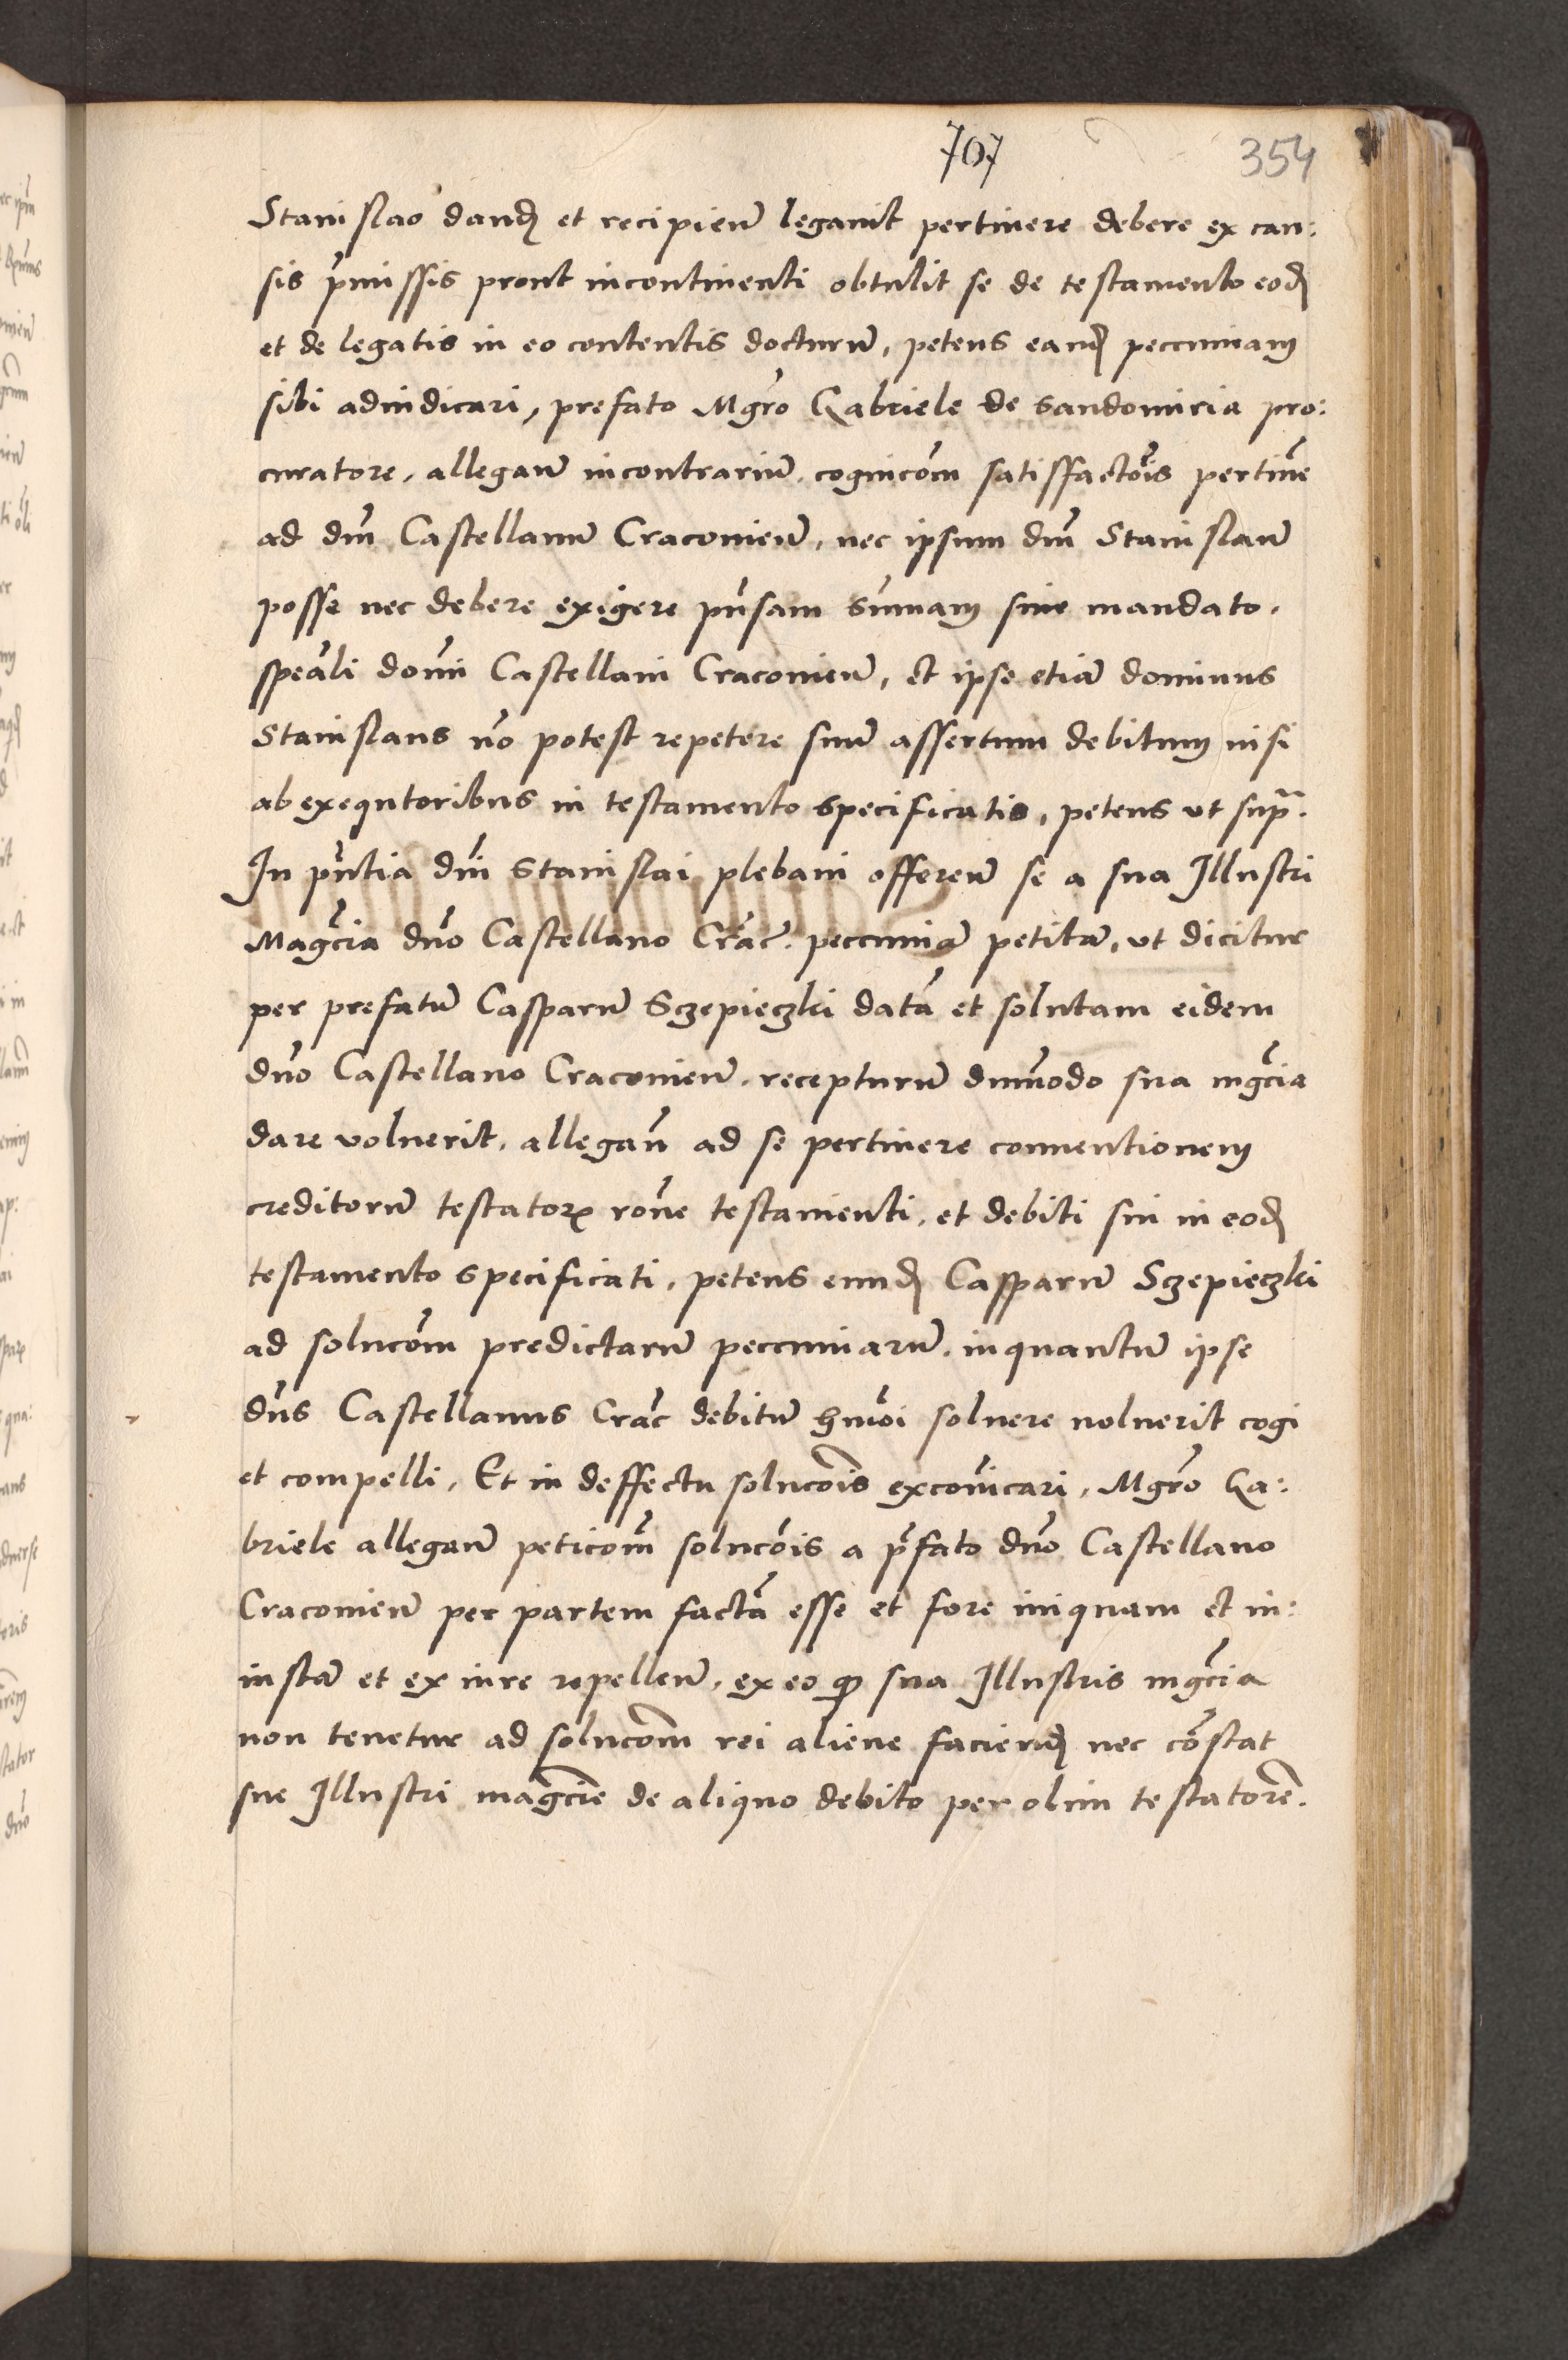 707 354
Stanislao dand et recipien̄ legauit pertinere debere ex cau:
sis p̄missis prout incontinenti obtulit se de testamento eod
et de legatis in eo contentis docturū, petens eand peccuniam
sibi adiudicari, prefato Mgr̄o Gabriele de Sandomiria pro:
curatore, allegan̄ incontrariū, cognicōm satisfactōis pertin̄e
ad dm̄ Castellanū Cracouien̄, nec ipsum dm̄ Stanislaū
posse nec debere exigere pn̄sam sūmam sine mandato.
speāli domī Castellani Cracouien̄, et ipse etiā dominus
Stanislaus nō potest repetere suū assertum debitum nisi
ab exequtoribus in testamento specificatis, petens vt supᷓ.
In pn̄tia dn̄i Stanislai plebani offeren̄ se a sua Illustri
Magc̄ia dn̄o Castellano Crac̄. peccuniā petitā, vt dicitur
per prefatū Casparū Sczepieczki datā et solutam eidem
dn̄o Castellano Cracouien̄, recepturū dūmodo sua mgc̄ia
dare voluerit, allegan̄ ad se pertinere conuentionem
creditorū testatorꝝ rōne testamenti, et debiti sui in eod
testamento specificati, petens eund Casparū Sczepieczki
ad solucōm predictarū peccuniarū, inquantū ipse
dn̄s Castellanus Crac̄ debitū hmōi soluere noluerit cogi
et compelli, Et in deffectu solucōis excōicari, Mgr̄o Ga:
briele allegan̄ peticōm solucōis a p̄fato dn̄o Castellano
Cracouien̄ per partem factā esse et fore iniquam et in:
iustā et ex iure repellen̄, ex eo ꝙ sua Illustris mgc̄ia
non tenetur ad solucōm rei aliene faciend nec cōstat
sue Illustri magc̄ie de aliquo debito per olim testatorē.